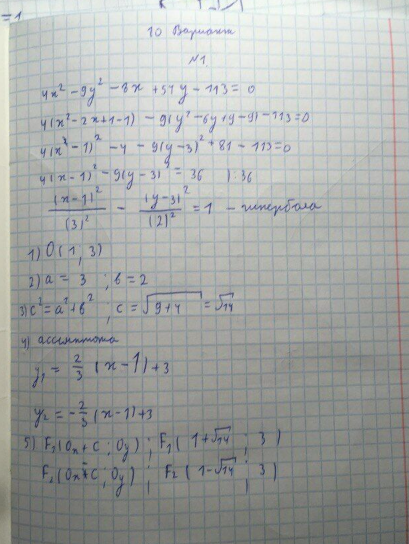 =1
10 Вариант
№1
4x² - 9y² - 8x + 54y - 113 = 0
4(x² - 2x + 1 - 1) - 9(y² - 6y + 9 - 9) - 113 = 0
4(x - 1)² - 4 - 9(y - 3)² + 81 - 113 = 0
4(x - 1)² - 9(y - 3)² = 36 |:36
(x - 1)²/(3)² - (y - 3)²/(2)² = 1 - гипербола
1) O(1, 3)
2) a = 3 ; b = 2
3) c² = a² + b² ; c = √9+4 = √14
4) ассимптота
y₁ = 2/3 (x - 1) + 3
y₂ = -2/3 (x - 1) + 3
5) F₁(Ox + C ; Oy) ; F₁(1 + √14 ; 3)
F₂(Ox - C ; Oy) ; F₂(1 - √14 ; 3)